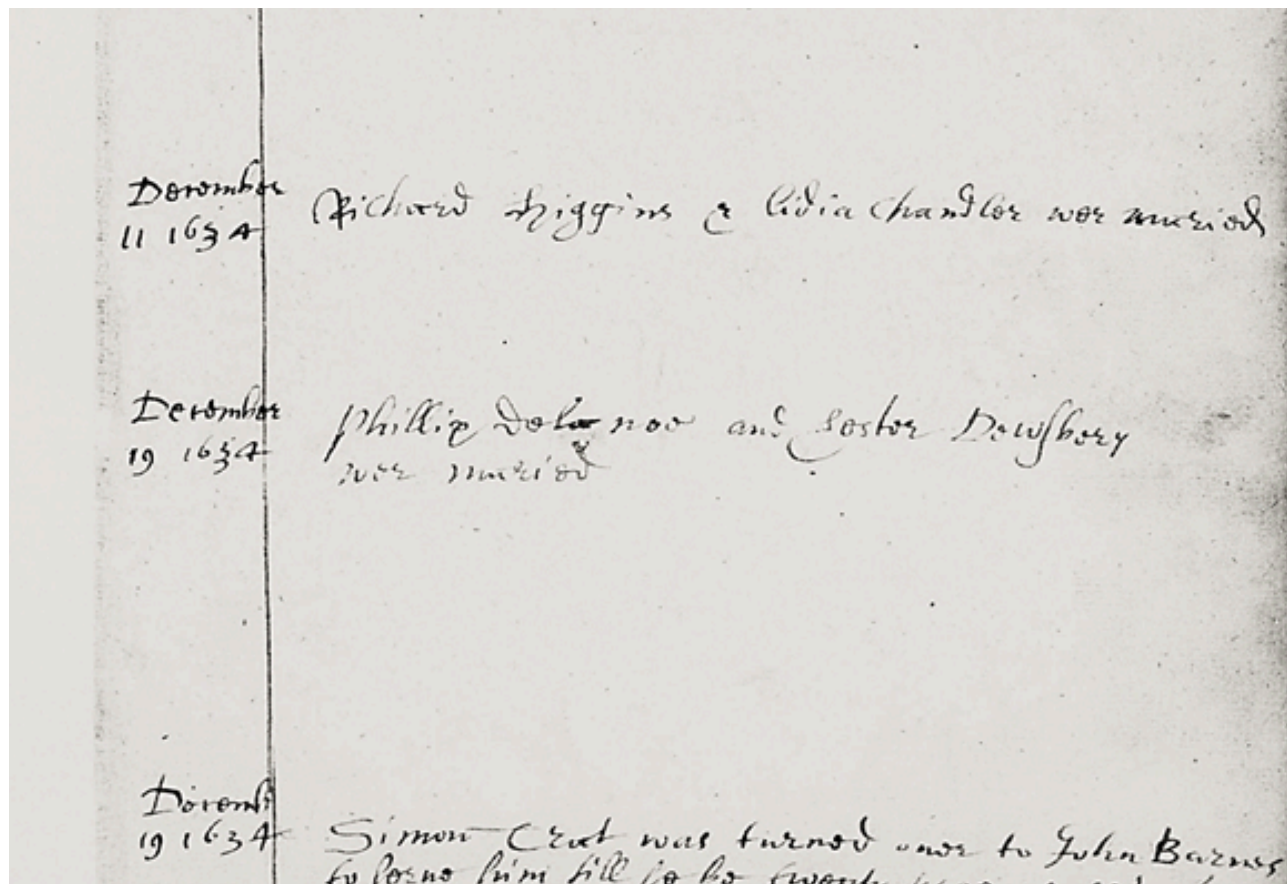 December
11 1634
Richard Higgins & lidia Chandler wer maried
December
19 1634
Phillip Delanoe and Hester Dewsbery
wer maried
Decemb
19 1634
Simon Trot was turned over to John Barnes
to serve him till he be twenty